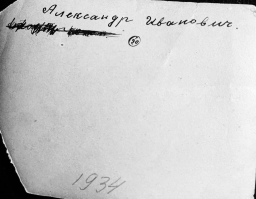 Александр Иванович.
70
1934